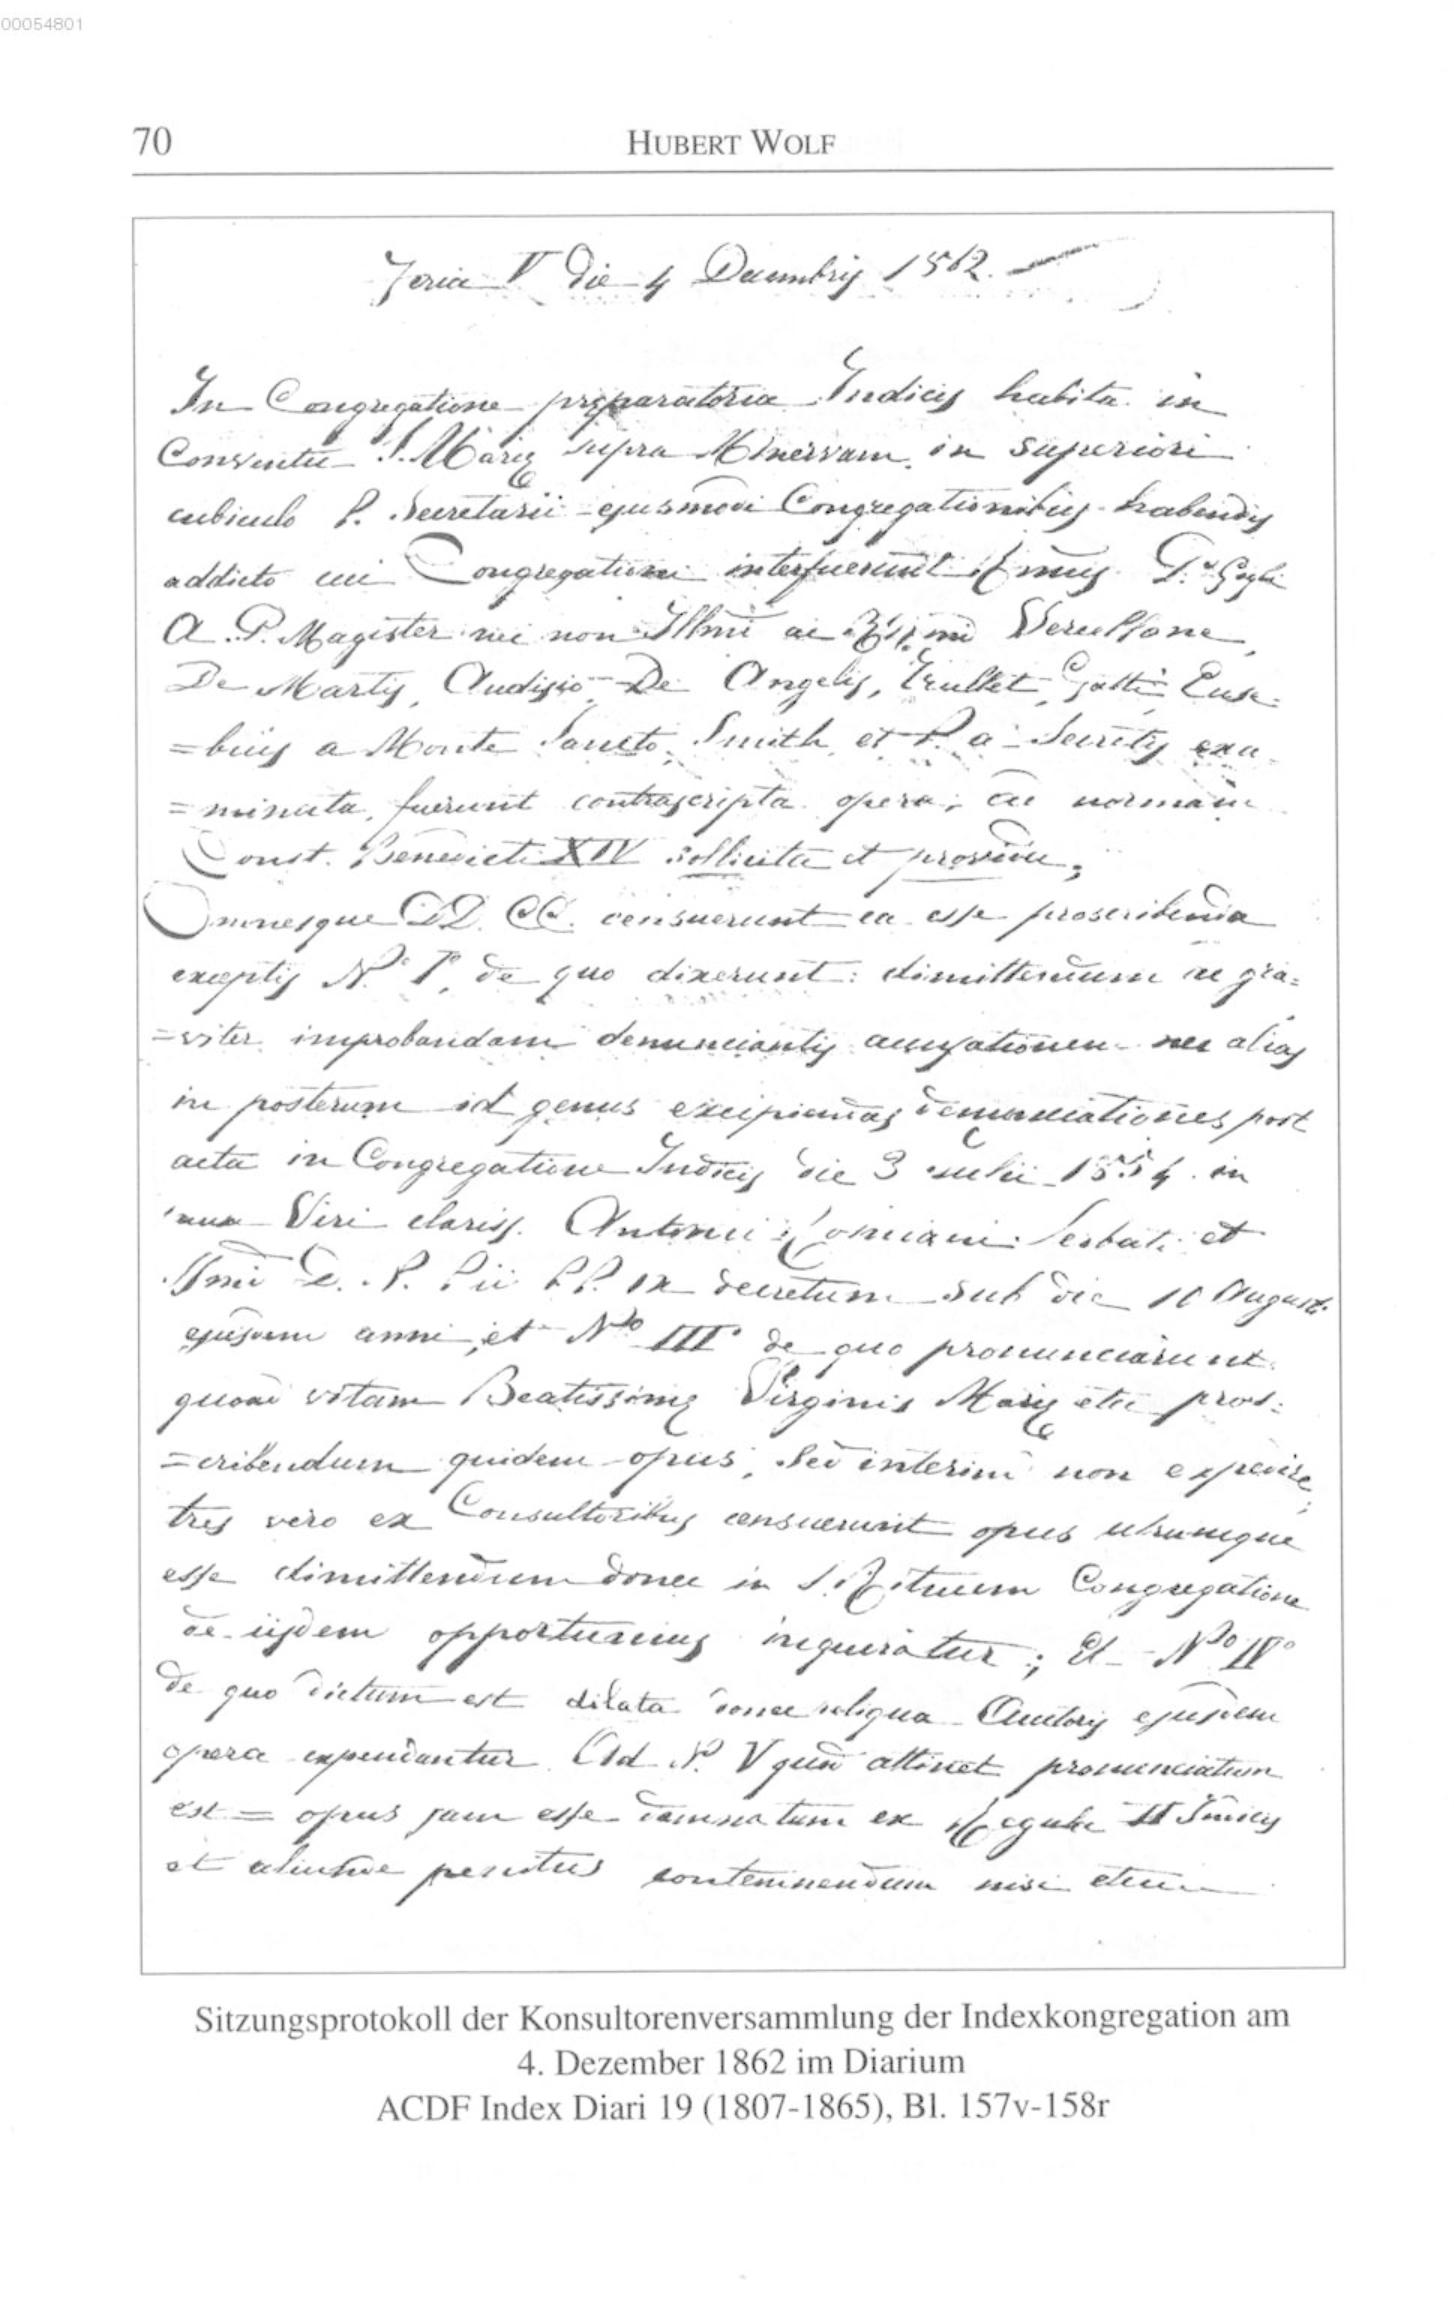 00054801
70
HUBERT WOLF
Feria V die 4 Decembris 1862.
In Congregatione pręparatoria Indicis habita in
Conventu S. Marię supra Minervam in superiori
cubiculo P. Secretarii ejusmodi Congregationibus habendis
addicto cui Congregationi interfuerunt Rmus P. Gigli
A. P. Magister nec non Illmi ac Rmi Vercellone,
De Martis, Audisio, De Angelis, Trullet, Gatti, Euse-
=bius a Monte Sancto, Smith, et P. a Secretis exa-
=minata fuerunt contrascripta opera, ad normam
Const. Benedicti XIV sollicita et provida;
Omnesque DD. CC. censuerunt ea esse proscribenda
exceptis N.º Iº, de quo dixerunt: dimittendum ac gra=
=viter improbandam denunciantis accusationem nec alias
in posterum id genus excipiendas denunciationes post
acta in Congregatione Indicis die 3 Julii 1854 in
Viri clariss. Antonii Rosmini Serbati et
Smi D. N. Pii PP. IX decretum sub die 10 Augusti
ejusdem anni, et Nº IIIº de quo pronunciarunt
quoad vitam Beatissimę Virginis Marię etc pros=
=cribendum quidem opus, sed interim non expedire;
tres vero ex Consultoribus censuerunt opus utrumque
esse dimittendum donec in S. Rituum Congregatione
de iisdem opportunius inquiratur; Et Nº IVº
de quo dictum est dilata donec reliqua Auctoris ejusdem
opera expendantur. Ad N. V quod attinet pronunciatum
est = opus jam esse damnatum ex Regula II Indicis
et aliunde penitus contemnendum nisi etiam
Sitzungsprotokoll der Konsultorenversammlung der Indexkongregation am
4. Dezember 1862 im Diarium
ACDF Index Diari 19 (1807-1865), Bl. 157v-158r